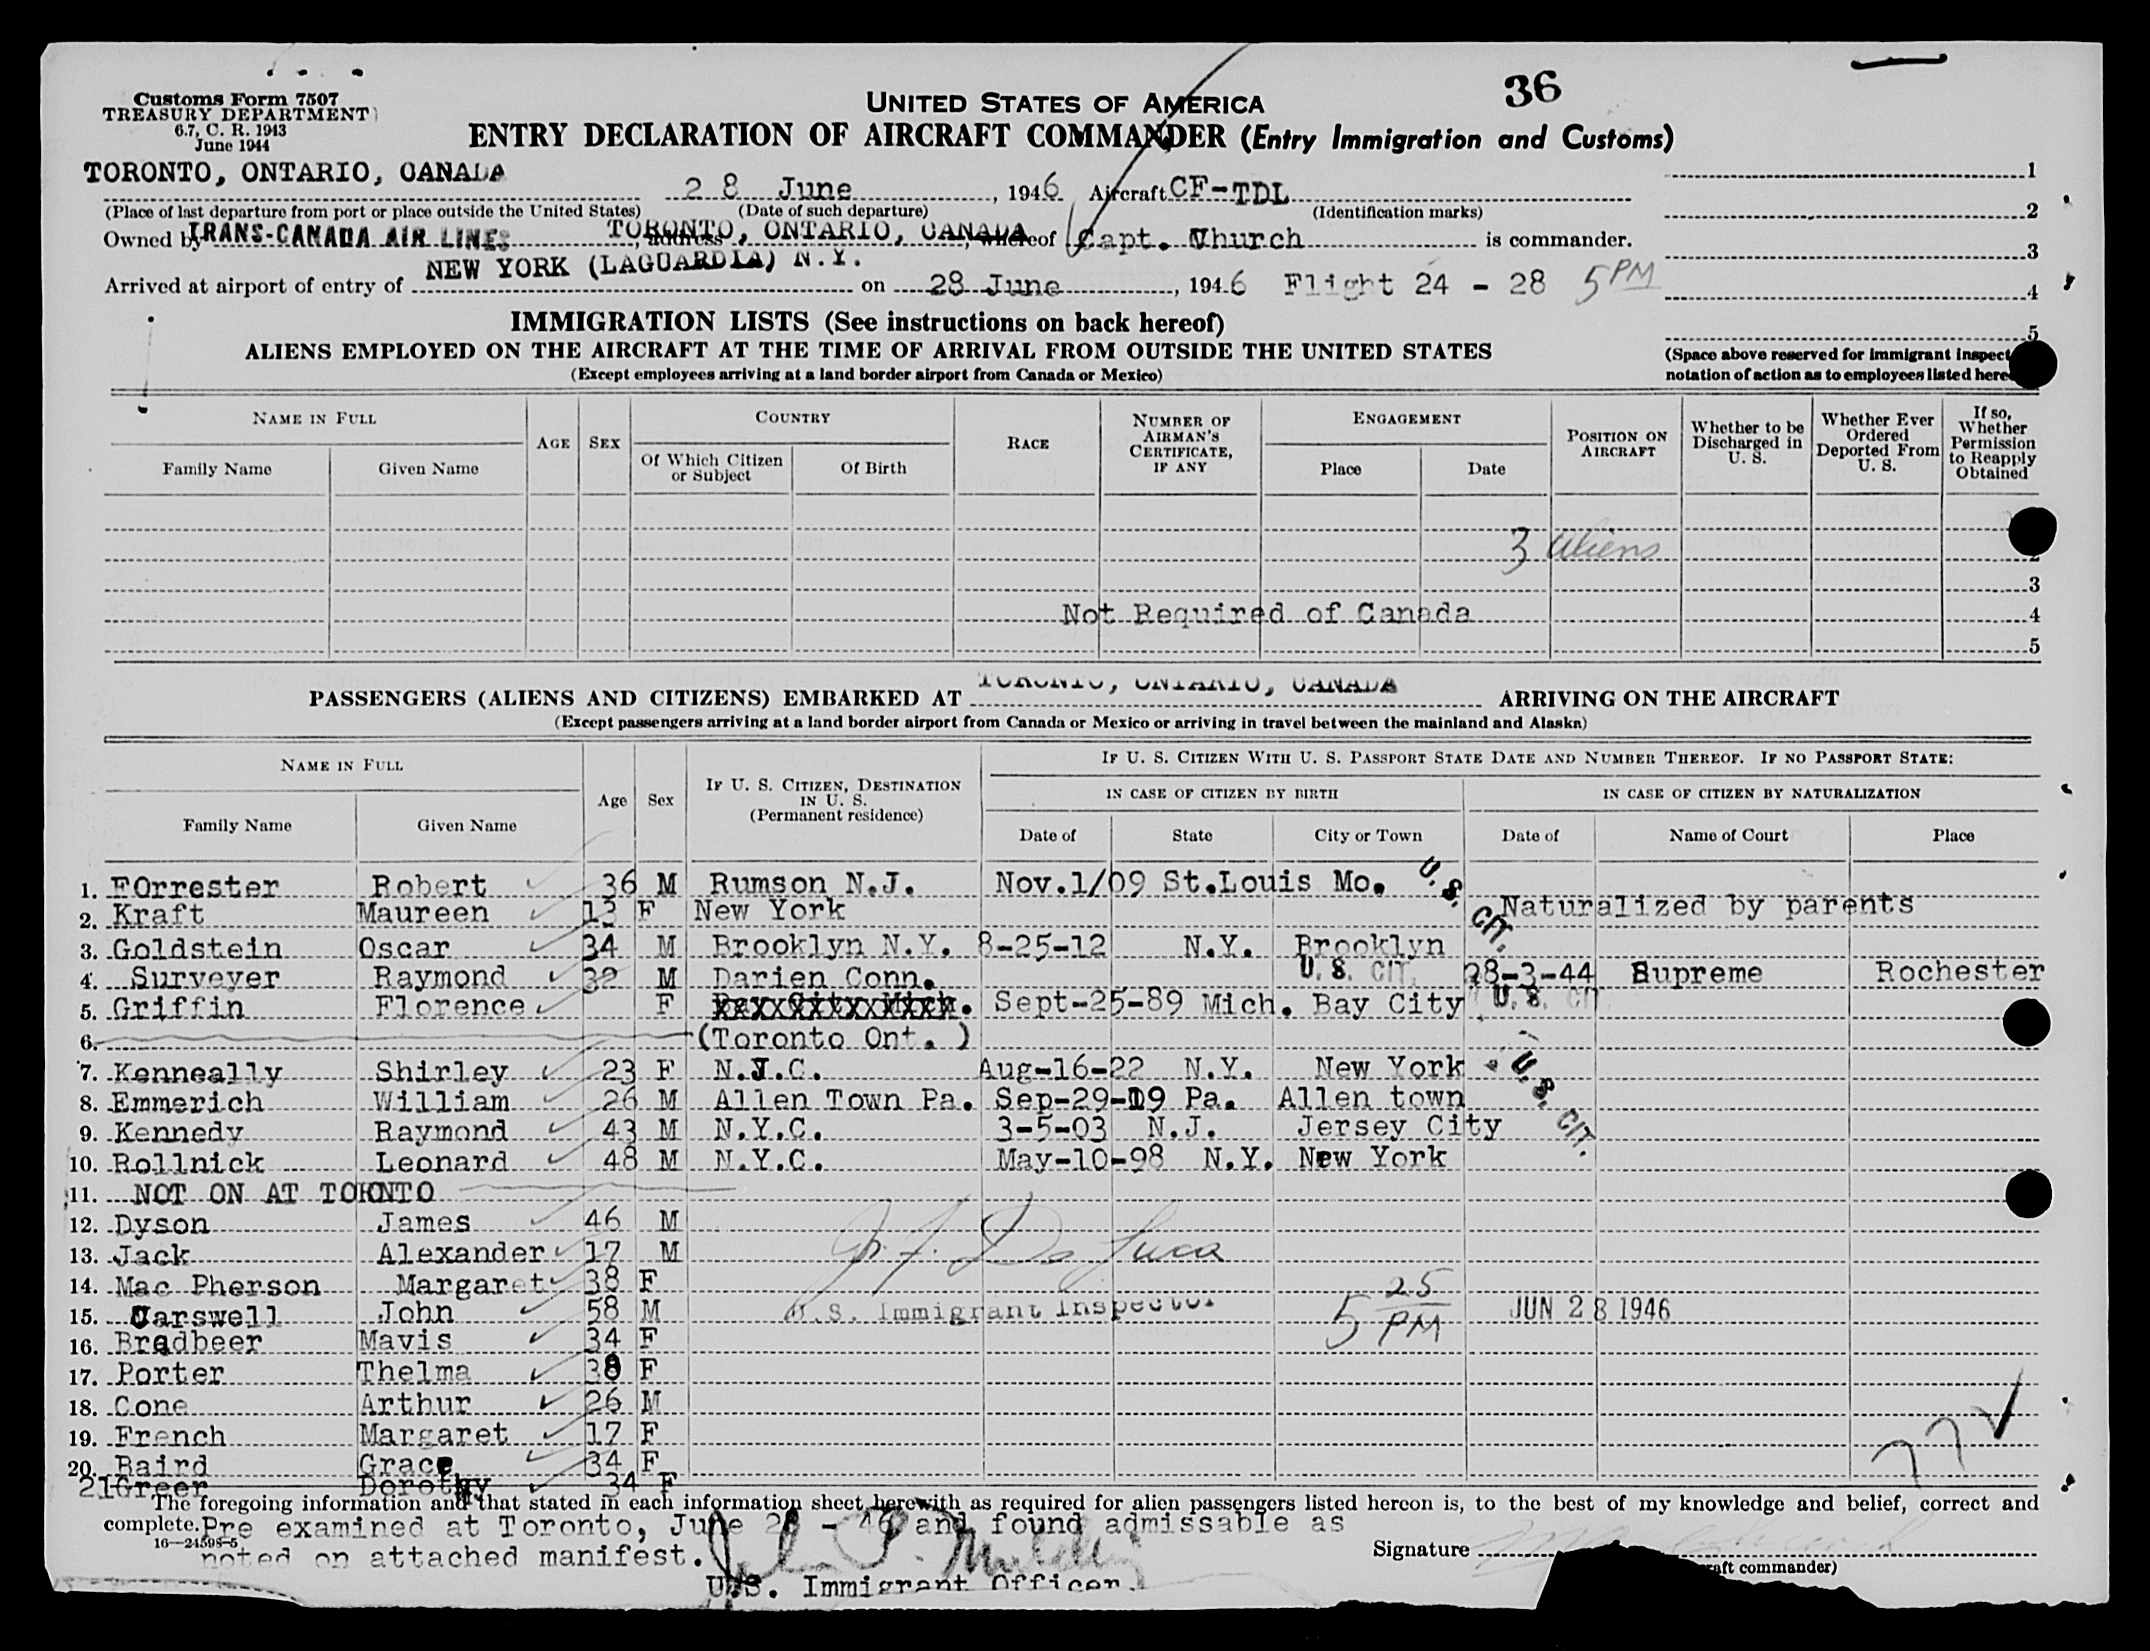 36
Customs Form 7507
TREASURY DEPARTMENT
6.7, C. R. 1943
June 1944
UNITED STATES OF AMERICA
ENTRY DECLARATION OF AIRCRAFT COMMANDER (Entry Immigration and Customs)
TORONTO, ONTARIO, CANADA 28 June, 1946 Aircraft CF-TDL
(Place of last departure from port or place outside the United States) (Date of such departure) (Identification marks)
Owned by TRANS-CANADA AIR LINES, address TORONTO, ONTARIO, CANADA, whereof Capt. Church is commander.
Arrived at airport of entry of NEW YORK (LAGUARDIA) N.Y. on 28 June, 1946 Flight 24 - 28 5 PM
1
2
3
4
5
IMMIGRATION LISTS (See instructions on back hereof)
ALIENS EMPLOYED ON THE AIRCRAFT AT THE TIME OF ARRIVAL FROM OUTSIDE THE UNITED STATES
(Except employees arriving at a land border airport from Canada or Mexico)
(Space above reserved for immigrant inspect
notation of action as to employees listed here
NAME IN FULL
Family Name Given Name
AGE SEX
COUNTRY
Of Which Citizen or Subject Of Birth
RACE
NUMBER OF AIRMAN'S CERTIFICATE, IF ANY
ENGAGEMENT
Place Date
POSITION ON AIRCRAFT
Whether to be Discharged in U. S.
Whether Ever Ordered Deported From U. S.
If so, Whether Permission to Reapply Obtained
3 Aliens
2
3
Not Required of Canada 4
5
PASSENGERS (ALIENS AND CITIZENS) EMBARKED AT TORONTO, ONTARIO, CANADA ARRIVING ON THE AIRCRAFT
(Except passengers arriving at a land border airport from Canada or Mexico or arriving in travel between the mainland and Alaska)
NAME IN FULL
Family Name Given Name
Age Sex
IF U. S. CITIZEN, DESTINATION IN U. S. (Permanent residence)
IF U. S. CITIZEN WITH U. S. PASSPORT STATE DATE AND NUMBER THEREOF. IF NO PASSPORT STATE:
IN CASE OF CITIZEN BY BIRTH IN CASE OF CITIZEN BY NATURALIZATION
Date of State City or Town Date of Name of Court Place
1. FOrrester Robert 36 M Rumson N.J. Nov.1/09 St.Louis Mo. U. S. CIT.
2. Kraft Maureen 13 F New York Naturalized by parents
3. Goldstein Oscar 34 M Brooklyn N.Y. 8-25-12 N.Y. Brooklyn
4. Surveyer Raymond 32 M Darien Conn. U. S. CIT. 28-3-44 Supreme Rochester
5. Griffin Florence F Sept-25-89 Mich. Bay City U. S. CIT
6. (Toronto Ont. )
7. Kenneally Shirley 23 F N.Y.C. Aug-16-22 N.Y. New York U. S. CIT.
8. Emmerich William 26 M Allen Town Pa. Sep-29-19 Pa. Allen town
9. Kennedy Raymond 43 M N.Y.C. 3-5-03 N.J. Jersey City
10. Rollnick Leonard 48 M N.Y.C. May-10-98 N.Y. New York
11. NOT ON AT TORNTO
12. Dyson James 46 M
13. Jack Alexander 17 M
14. Mac Pherson Margaret 38 F
15. Carswell John 58 M U.S. Immigrant Inspector 5 25 PM JUN 28 1946
16. Bradbeer Mavis 34 F
17. Porter Thelma 38 F
18. Cone Arthur 26 M
19. French Margaret 17 F
20. Baird Grace 34 F
21 Greer Dorothy 34 F
The foregoing information and that stated in each information sheet herewith as required for alien passengers listed hereon is, to the best of my knowledge and belief, correct and
complete. Pre examined at Toronto, June 28 - 46 and found admissable as
16—24598-5
noted on attached manifest.
Signature
U.S. Immigrant Officer.
aft commander)